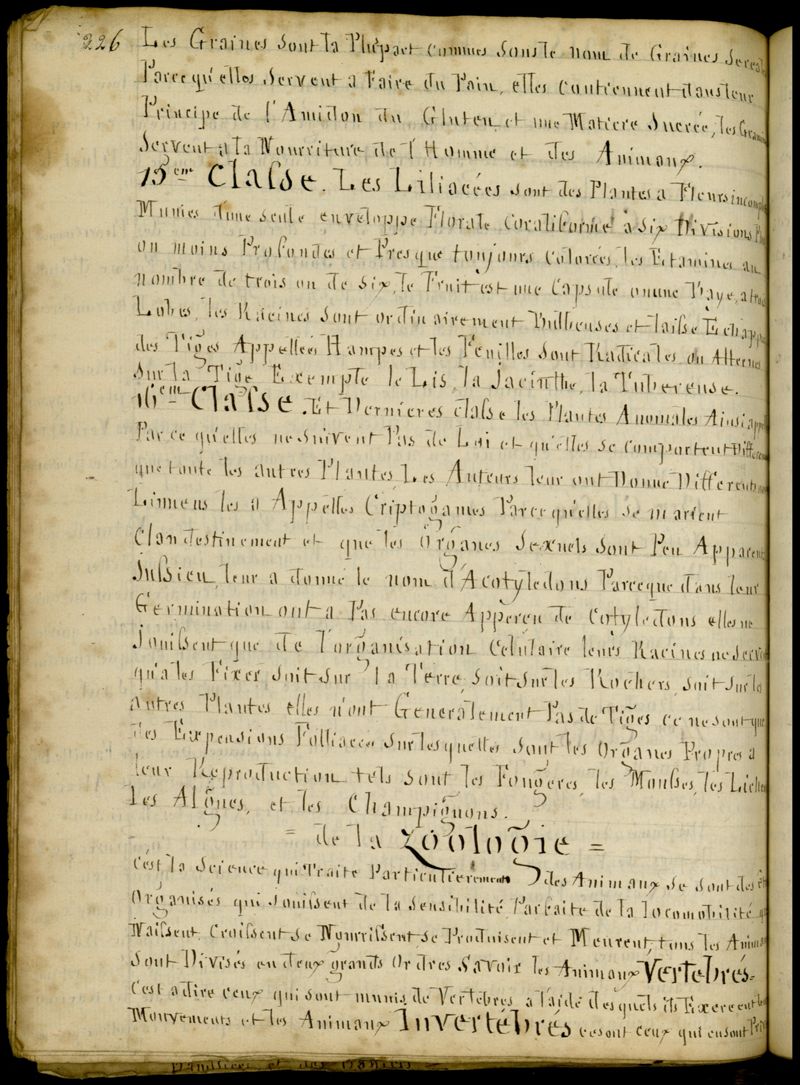 226 Les Graines sont la Plupart connues sous le nom de Graines
Parce qu'elles servent a Faire du Pain, elles contiennent dans leur
Principe de l'Amidon du Gluten, et une Matiere Sucrée, les
Servent a la Nourriture de l'Homme et des Animaux.
15em Classe. Les Liliacées sont des Plantes a Fleurs
Munies d'une seule enveloppe Florale Coraliforme à six Divisions
ou moins Profondes et Presque toujours Colorées, les Etamines au
nombre de trois ou de six, le Fruit est une Capsule a trois
Lobes, les Racines sont ordinairement Bulbeuses et laisse
des Tiges Appellées Hampes et les Feuilles sont Radicales ou Alternes
Sur la Tige Exemple le Lis, la Jacinthe, la Tubereuse.
16em Classe. Et Dernieres classe les Plantes Anomales Ainsi
Parce qu'elles ne suivent Pas de Loi et qu'elles se comportent
que toute les autres Plantes Les Auteurs leur ont Donné
les a Appelles Criptogames Parce qu'elles se marient
Clandestinement et que les Organes Sexuels sont Peu
Jussieu, leur a donné le nom d'Acotyledons Parceque dans leur
Germination ont a Pas encore Apperçu de Cotyledons elles ne
Jouissent que de l'organisation Celulaire leurs Racines ne
qu'a les Fixer soit sur la Terre, soit sur les Rochers, soit sur
autres Plantes elles n'ont Generalement Pas de Tiges ce ne sont que
des Expensions Folliacées sur lesquelles sont les Organes Propres a
leur Reproduction tels sont les Fougeres, les Mousses, les
Les Algues, et les Champignons.
= de la Zoologie =
C'est la Science qui Traite Particulièrement des Animaux se sont des
Organisés qui Jouissent de la Sensibilité Parfaite de la locomobilité
Naissent, Croissent se Nourrissent se Produisent et Meurent, tous les
Sont Divisés en deux grands Ordres Savoir les Animaux Vertebrés
C'est a dire ceux qui sont munis de Vertebres a l'aide desquels ils Exercent
Mouvements et les Animaux Invertebrés ce sont ceux qui en sont